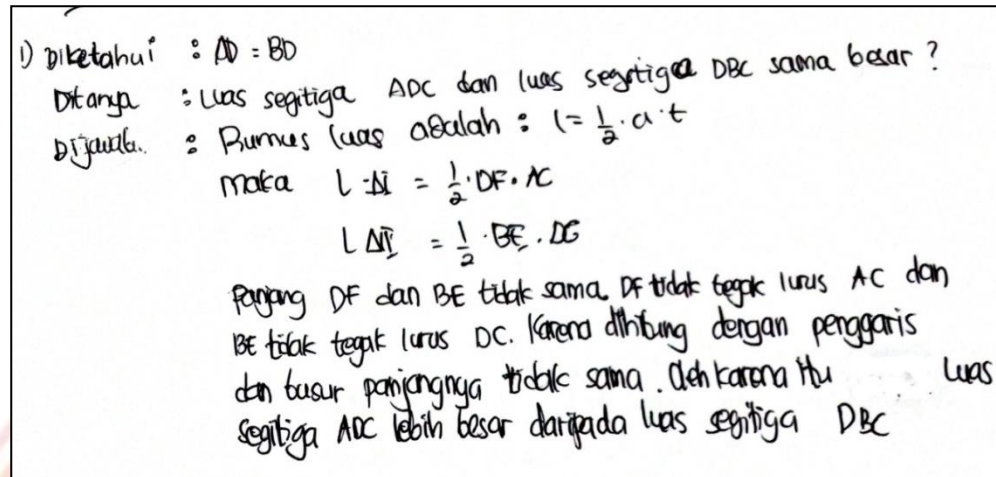 1) Diketahui : AD = BD
Ditanya : Luas segitiga ADC dan luas segitiga DBC sama besar ?
Dijawab. : Rumus luas adalah : L = 1/2 . a . t
maka L ΔI = 1/2 . DF . AC
L ΔII = 1/2 . BE . DG
Panjang DF dan BE tidak sama. DF tidak tegak lurus AC dan
BE tidak tegak lurus DC. Karena dihitung dengan penggaris
dan busur panjangnya tidak sama. Oleh karena itu luas
segitiga ADC lebih besar daripada luas segitiga DBC